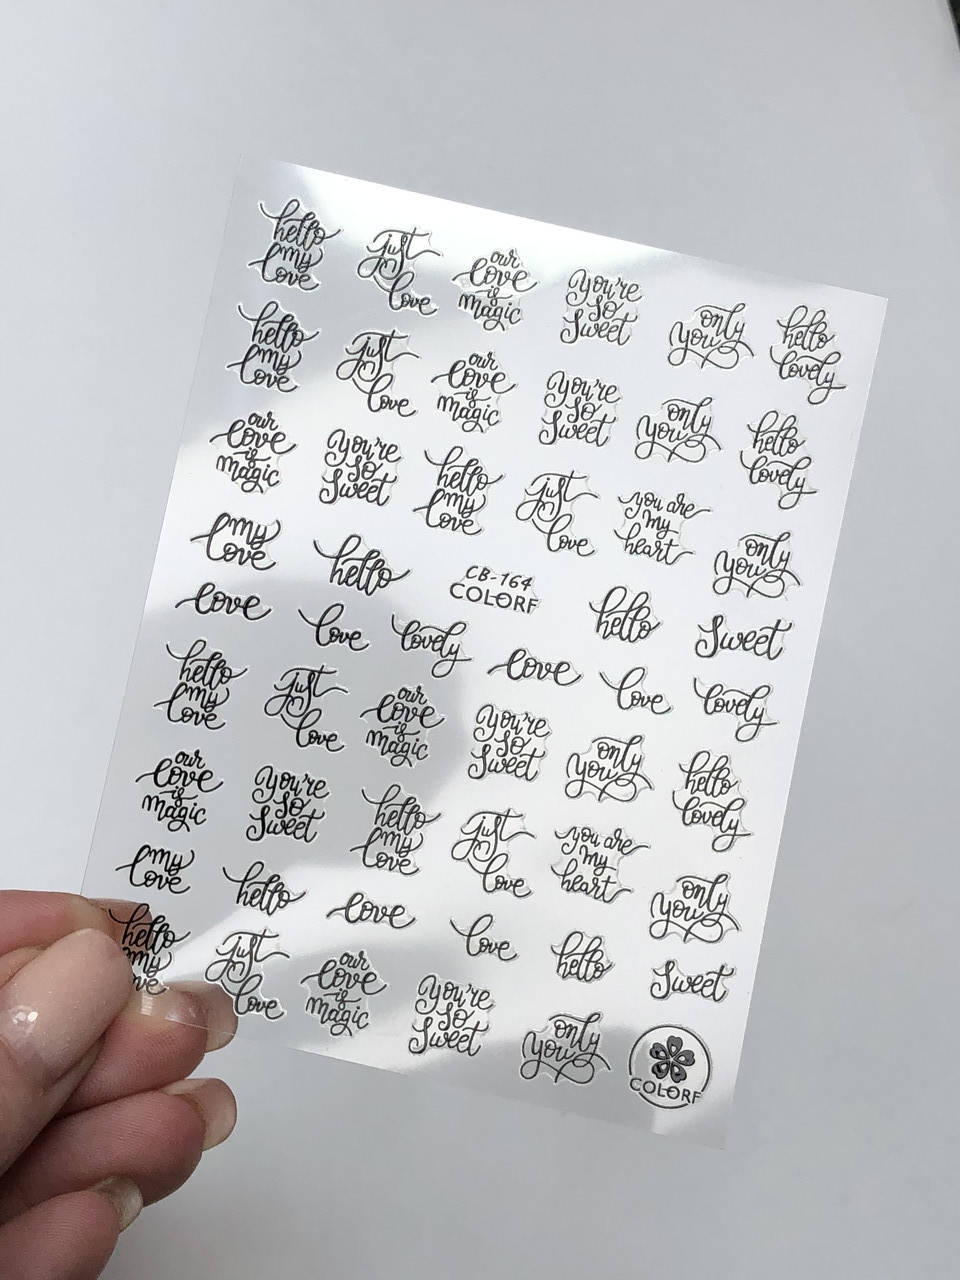 hello my love
just love
our love is magic
You're so Sweet
only you
hello lovely
hello my love
just love
our love is magic
You're so Sweet
only you
hello lovely
our love is magic
You're so Sweet
hello my love
just love
you are my heart
only you
my love
hello
CB-164
COLORF
hello
Sweet
love
love
lovely
love
love
lovely
hello my love
just love
our love is magic
You're so Sweet
only you
hello lovely
our love is magic
You're so Sweet
hello my love
just love
you are my heart
only you
my love
hello
love
love
hello
Sweet
hello my love
just love
our love is magic
You're so Sweet
only you
COLORF